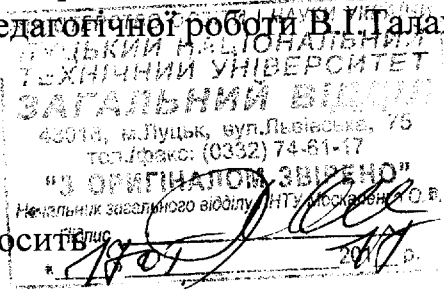 едагогічної роботи В.І.Талах
ЛУЦЬКИЙ НАЦІОНАЛЬНИЙ
ТЕХНІЧНИЙ УНІВЕРСИТЕТ
ЗАГАЛЬНИЙ ВІДДІЛ
м.Луцьк, вул.Львівська, 75
тел./факс: (0332) 74-61-17
"З ОРИГІНАЛОМ ЗВІРЕНО"
Начальник загального відділу ЛНТУ О.В.
Підпис
осить
20 р.